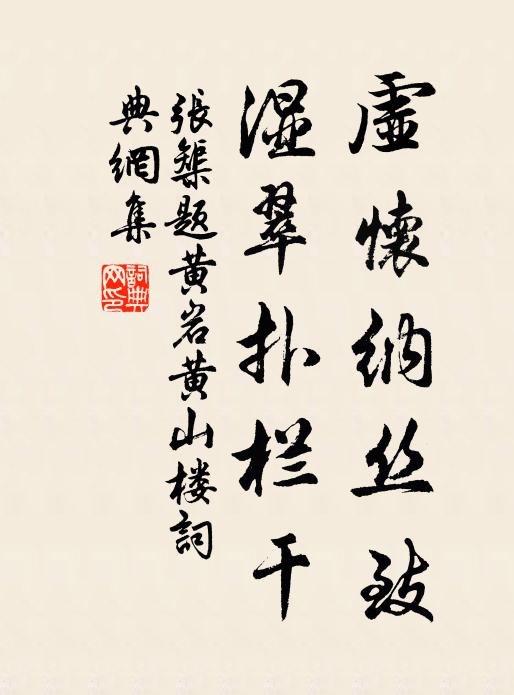 虚懷纳丝致
湿翠扑栏干
張榘题黄岩黄山楼詞
典網集
詞典
网印